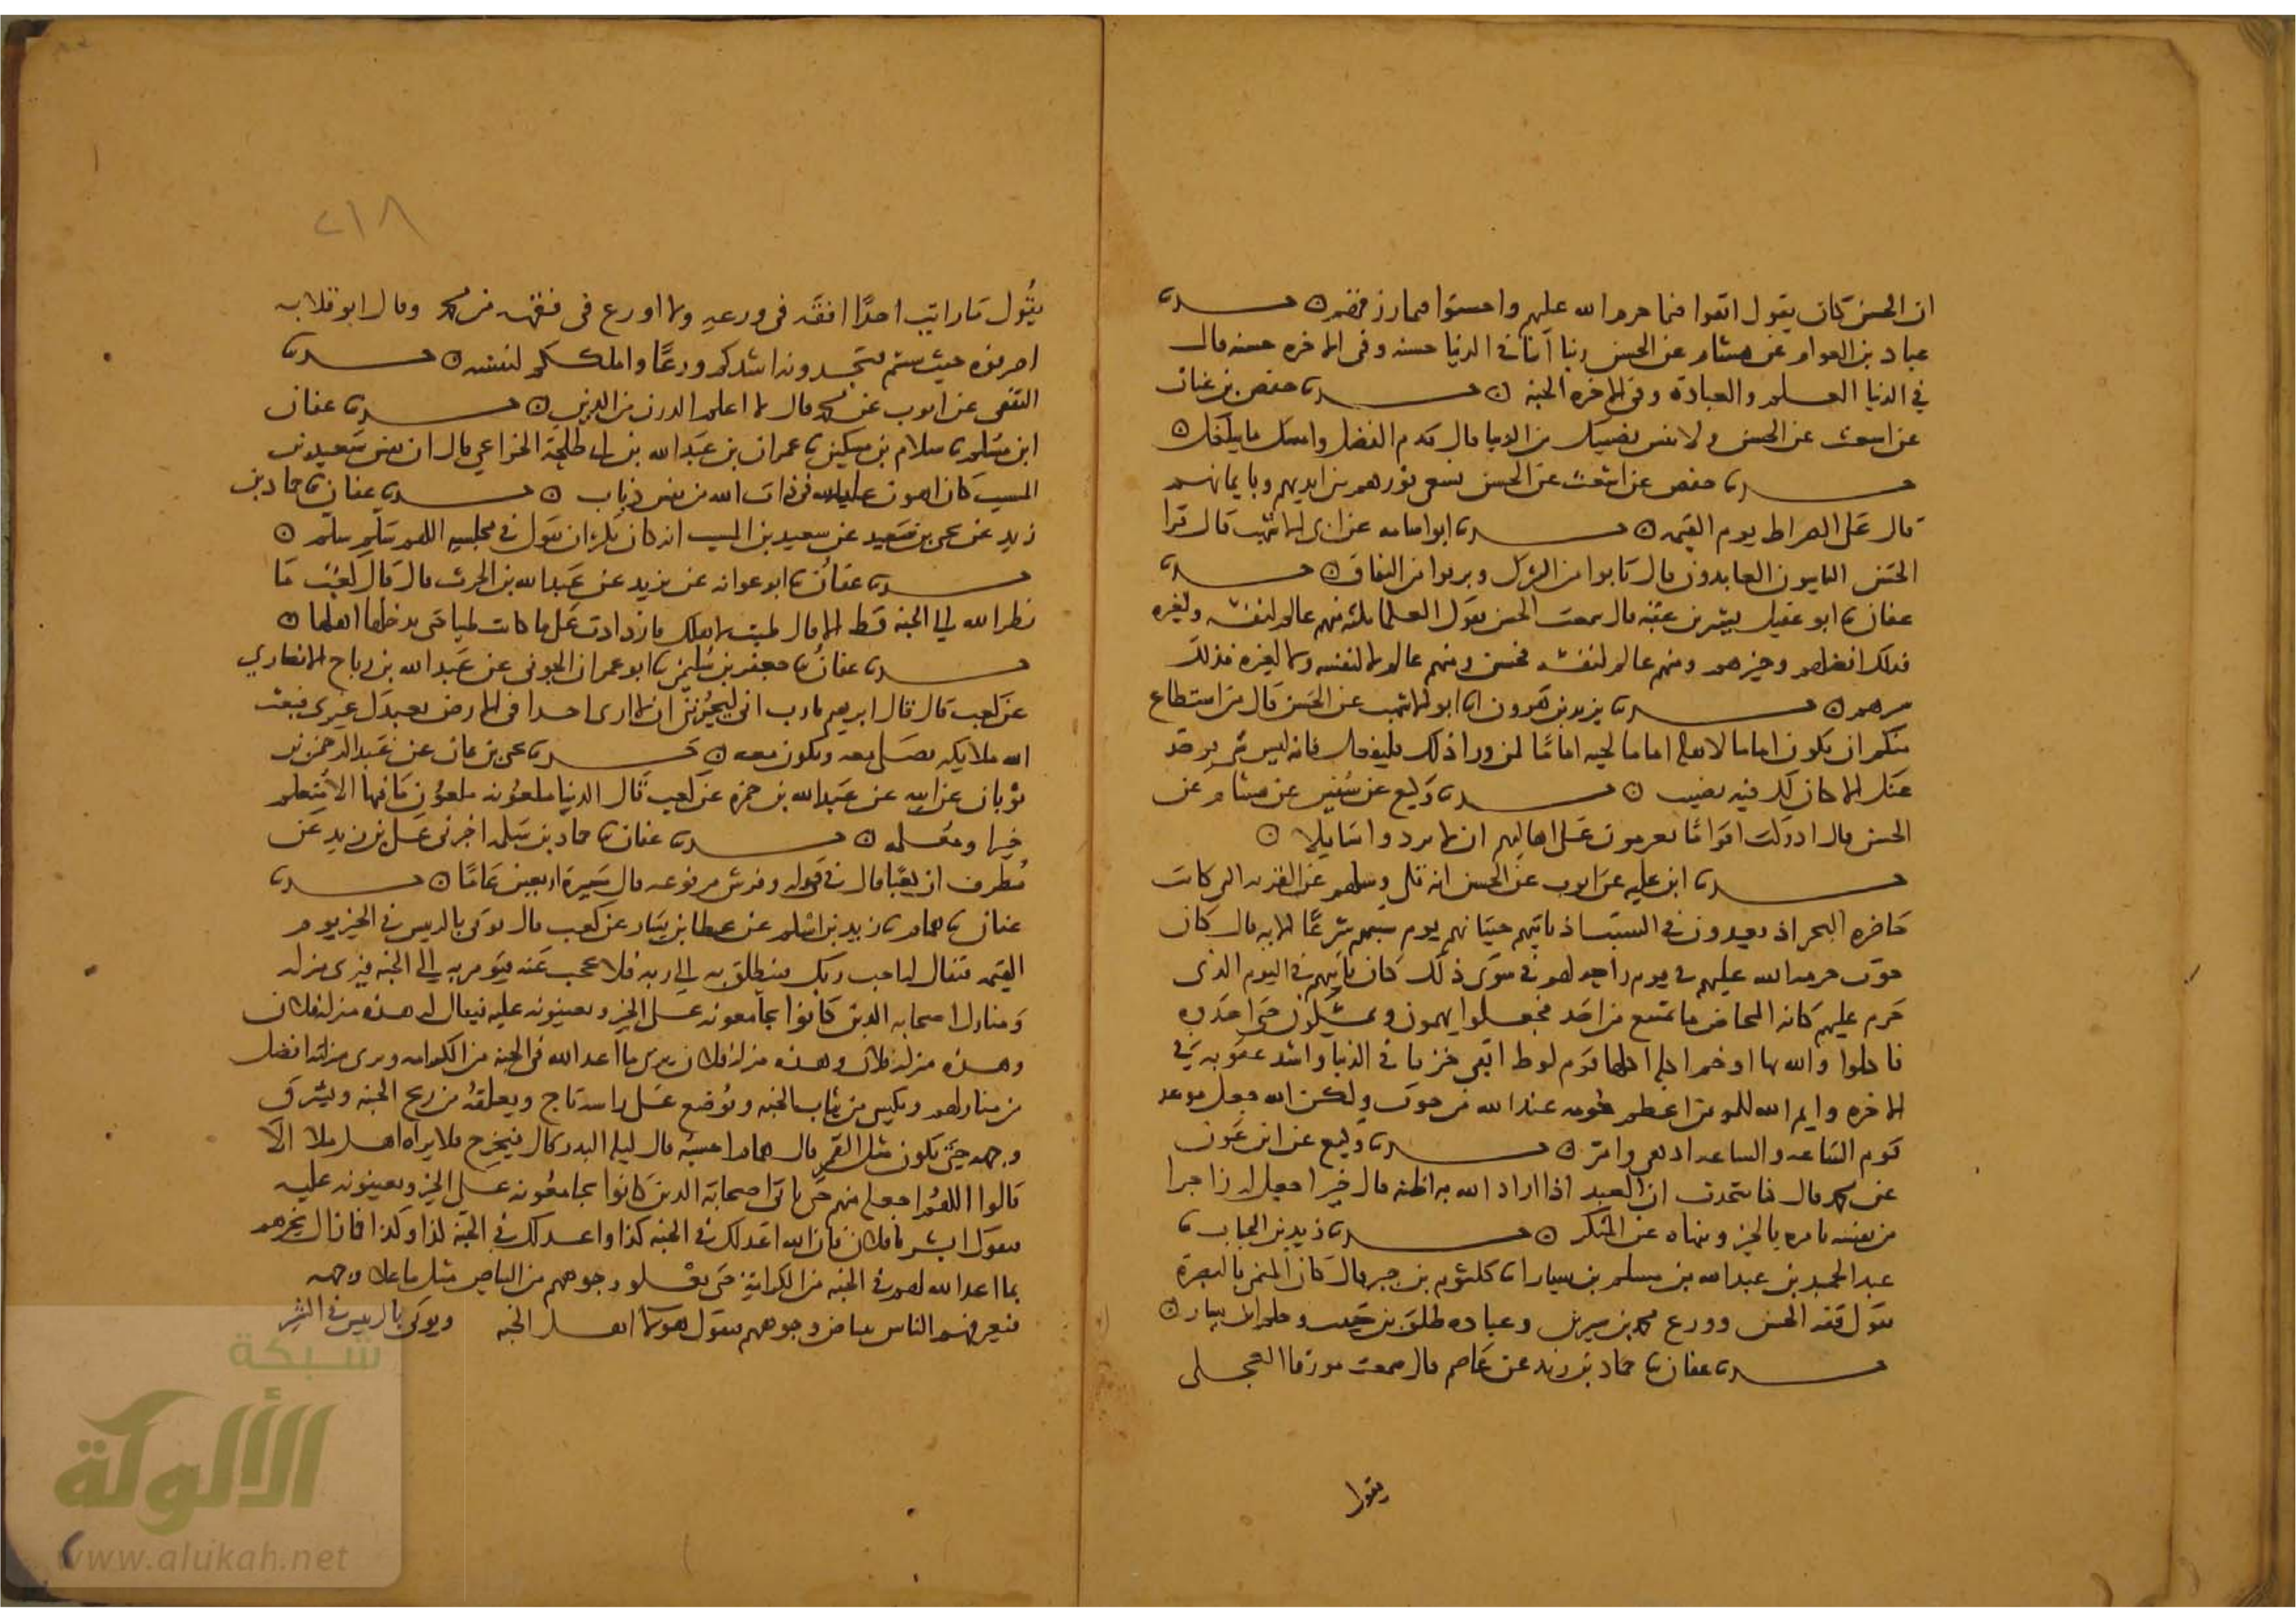 ان الحسن كان يقول اتقوا فيما حرم الله عليهم واحسنوا فيما رزقهم حدثنا
عباد بن العوام عن هشام عن الحسن ربنا آتنا في الدنيا حسنة وفي الاخرة حسنة قال
في الدنيا العلم والعبادة وفي الاخرة الجنة حدثنا حفص بن غياث
عن اشعث عن الحسن ولا تنس نصيبك من الدنيا قال قدم الفضل وامسك ما يبلغك
حدثنا حفص عن اشعث عن الحسن يسعى نورهم بين ايديهم وبايمانهم
قال على الصراط يوم القيمة حدثنا ابو اسامة عن ابي الاشهب قال قرا
الحسن التايبون العابدون قال تابوا من الشرك وبريوا من النفاق حدثنا
عفان نا ابو عقيل بشير بن عقبة قال سمعت الحسن يقول العلما ثلثة منهم عالم لنفسه ولغيره
فذلك افضلهم وخيرهم ومنهم عالم لنفسه فحسن ومنهم عالم لا لنفسه ولا لغيره فذلك
شرهم حدثنا يزيد بن هرون انا ابو الاشهب عن الحسن قال من استطاع
منكم ان يكون اماما لاهله اماما لحيه اماما لمن ورا ذلك فليفعل فانه ليس شي يوخذ
عنك الا كان لك فيه نصيب حدثنا وكيع عن سفين عن هشام عن
الحسن قال ادركت اقواما يعزمون على اهاليهم ان لا يردوا سايلا
حدثنا ابن علية عن ايوب عن الحسن انه تلى وسلهم عن القرية التي كانت
حاضرة البحر اذ يعدون في السبت اذ تاتيهم حيتانهم يوم سبتهم شرعا الاية قال كان
حوت حرمه الله عليهم في يوم واحله لهم في سوى ذلك كان ياتيهم في اليوم الذي
حرم عليهم كانه المخاض ما يمتنع من احد فجعلوا يهمون ويمسكون حتى اخذوه
فاكلوا والله بها اوخم اكلة اكلها قوم لوط ابقى خزيا في الدنيا واشد عقوبة في
الاخرة وايم الله للمومن اعظم حرمة عند الله من حوت ولكن الله جعل موعد
قوم الساعة والساعة ادهى وامر حدثنا وكيع عن ابن عون
عن محمد قال كنا نتحدث ان العبد اذا اراد الله به اظنه قال خيرا جعل له زاجرا
من نفسه يامره بالخير وينهاه عن المنكر حدثنا زيد بن الحباب نا
عبد الحميد بن عبد الله بن مسلم بن يسار نا كلثوم بن جبر قال كان المتمني بالبصرة
يقول فقه الحسن وورع محمد بن سيرين وعبادة طلق بن حبيب وحلم ابن يسار
حدثنا عفان نا حماد بن زيد عن عاصم قال سمعت مورقا العجلي
يقول
يقول ما رايت احدا افقه في ورعه ولا اورع في فقهه من محمد وقال ابو قلابة
اصرفوه حيث شيتم فتجدونه اشدكم ورعا واملككم لنفسه حدثنا
الثقفي عن ايوب عن محمد قال لا اعلم الدرن من الدين حدثنا عفان
ابن مسلم نا سلام بن مسكين نا عمران بن عبد الله بن طلحة الخزاعي قال ان نفس سعيد بن
المسيب كان اهون عليه في ذات الله من نفس ذباب حدثنا عفان نا حماد بن
زيد عن يحيى بن سعيد عن سعيد بن المسيب انه كان يكثر ان يقول في مجلسه اللهم سلم سلم
حدثنا عفان نا ابو عوانة عن يزيد عن عبد الله بن الحرث قال قال كعب ما
نظر الله الي الجنة قط الا قال طيبي لاهلك فازدادت على ما كانت طيبا حتى يدخلها اهلها
حدثنا عفان نا جعفر بن سليمن نا ابو عمران الجوني عن عبد الله بن رباح الانصاري
عن كعب قال قال ابرهيم يا رب اني ليحزنني ان لا ارى احدا في الارض يعبدك غيري فبعث
الله ملايكة تصلي معه وتكون معه حدثنا يحيى بن عن عبد الرحمن بن
ثوبان عن ابيه عن عبد الله بن ضمرة عن كعب قال الدنيا ملعونة ملعون ما فيها الا متعلم
خيرا ومعلمه حدثنا عفان نا حماد بن سلمة اخبرني علي بن زيد عن
مطرف ان كعبا قال في قوله وفرش مرفوعة قال مسيرة اربعين عاما حدثنا
عفان نا همام نا زيد بن اسلم عن عطا بن يسار عن كعب قال يوتى بالرييس في الخير يوم
القيمة فيقال له اجب ربك فينطلق به الى ربه فلا يحجب عنه فيومر به الى الجنة فيرى منزله
ومنازل اصحابه الذين كانوا يجامعونه على الخير ويعينونه عليه فيقال له هذه منزلة فلان
وهذه منزلة فلان وهذه منزلة فلان فيرى ما اعد الله في الجنة من الكرامة ويرى منزلته افضل
من منازلهم ويكسى من ثياب الجنة ويوضع على راسه تاج ويعلقه من ريح الجنة ويشرق
وجهه حتى يكون مثل القمر قال همام احسبه قال ليلة البدر قال فيخرج فلا يراه اهل ملا الا
قالوا اللهم اجعله منهم حتى ياتي اصحابه الذين كانوا يجامعونه على الخير ويعينونه عليه
فيقول ابشر يا فلان فان الله اعد لك في الجنة كذا واعد لك في الجنة كذا وكذا فما زال يخبرهم
بما اعد الله لهم في الجنة من الكرامة حتى يعلو وجوههم من البياض مثل ما علا وجهه
فيعرفهم الناس ببياض وجوههم فيقولون هولا اهل الجنة ويوتى بالرييس في الشر
٢١٨
شبكة
الألوكة
www.alukah.net